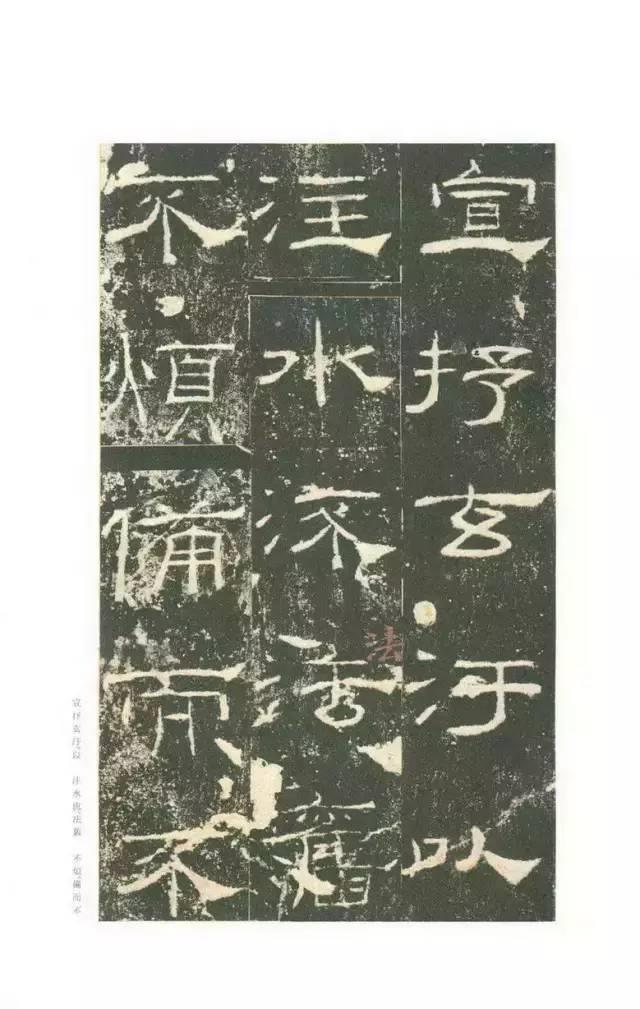 宣抒玄汙以
注水流法舊
不煩備而不
法
宣抒玄汙，以　注水流。法舊　不煩，備而不